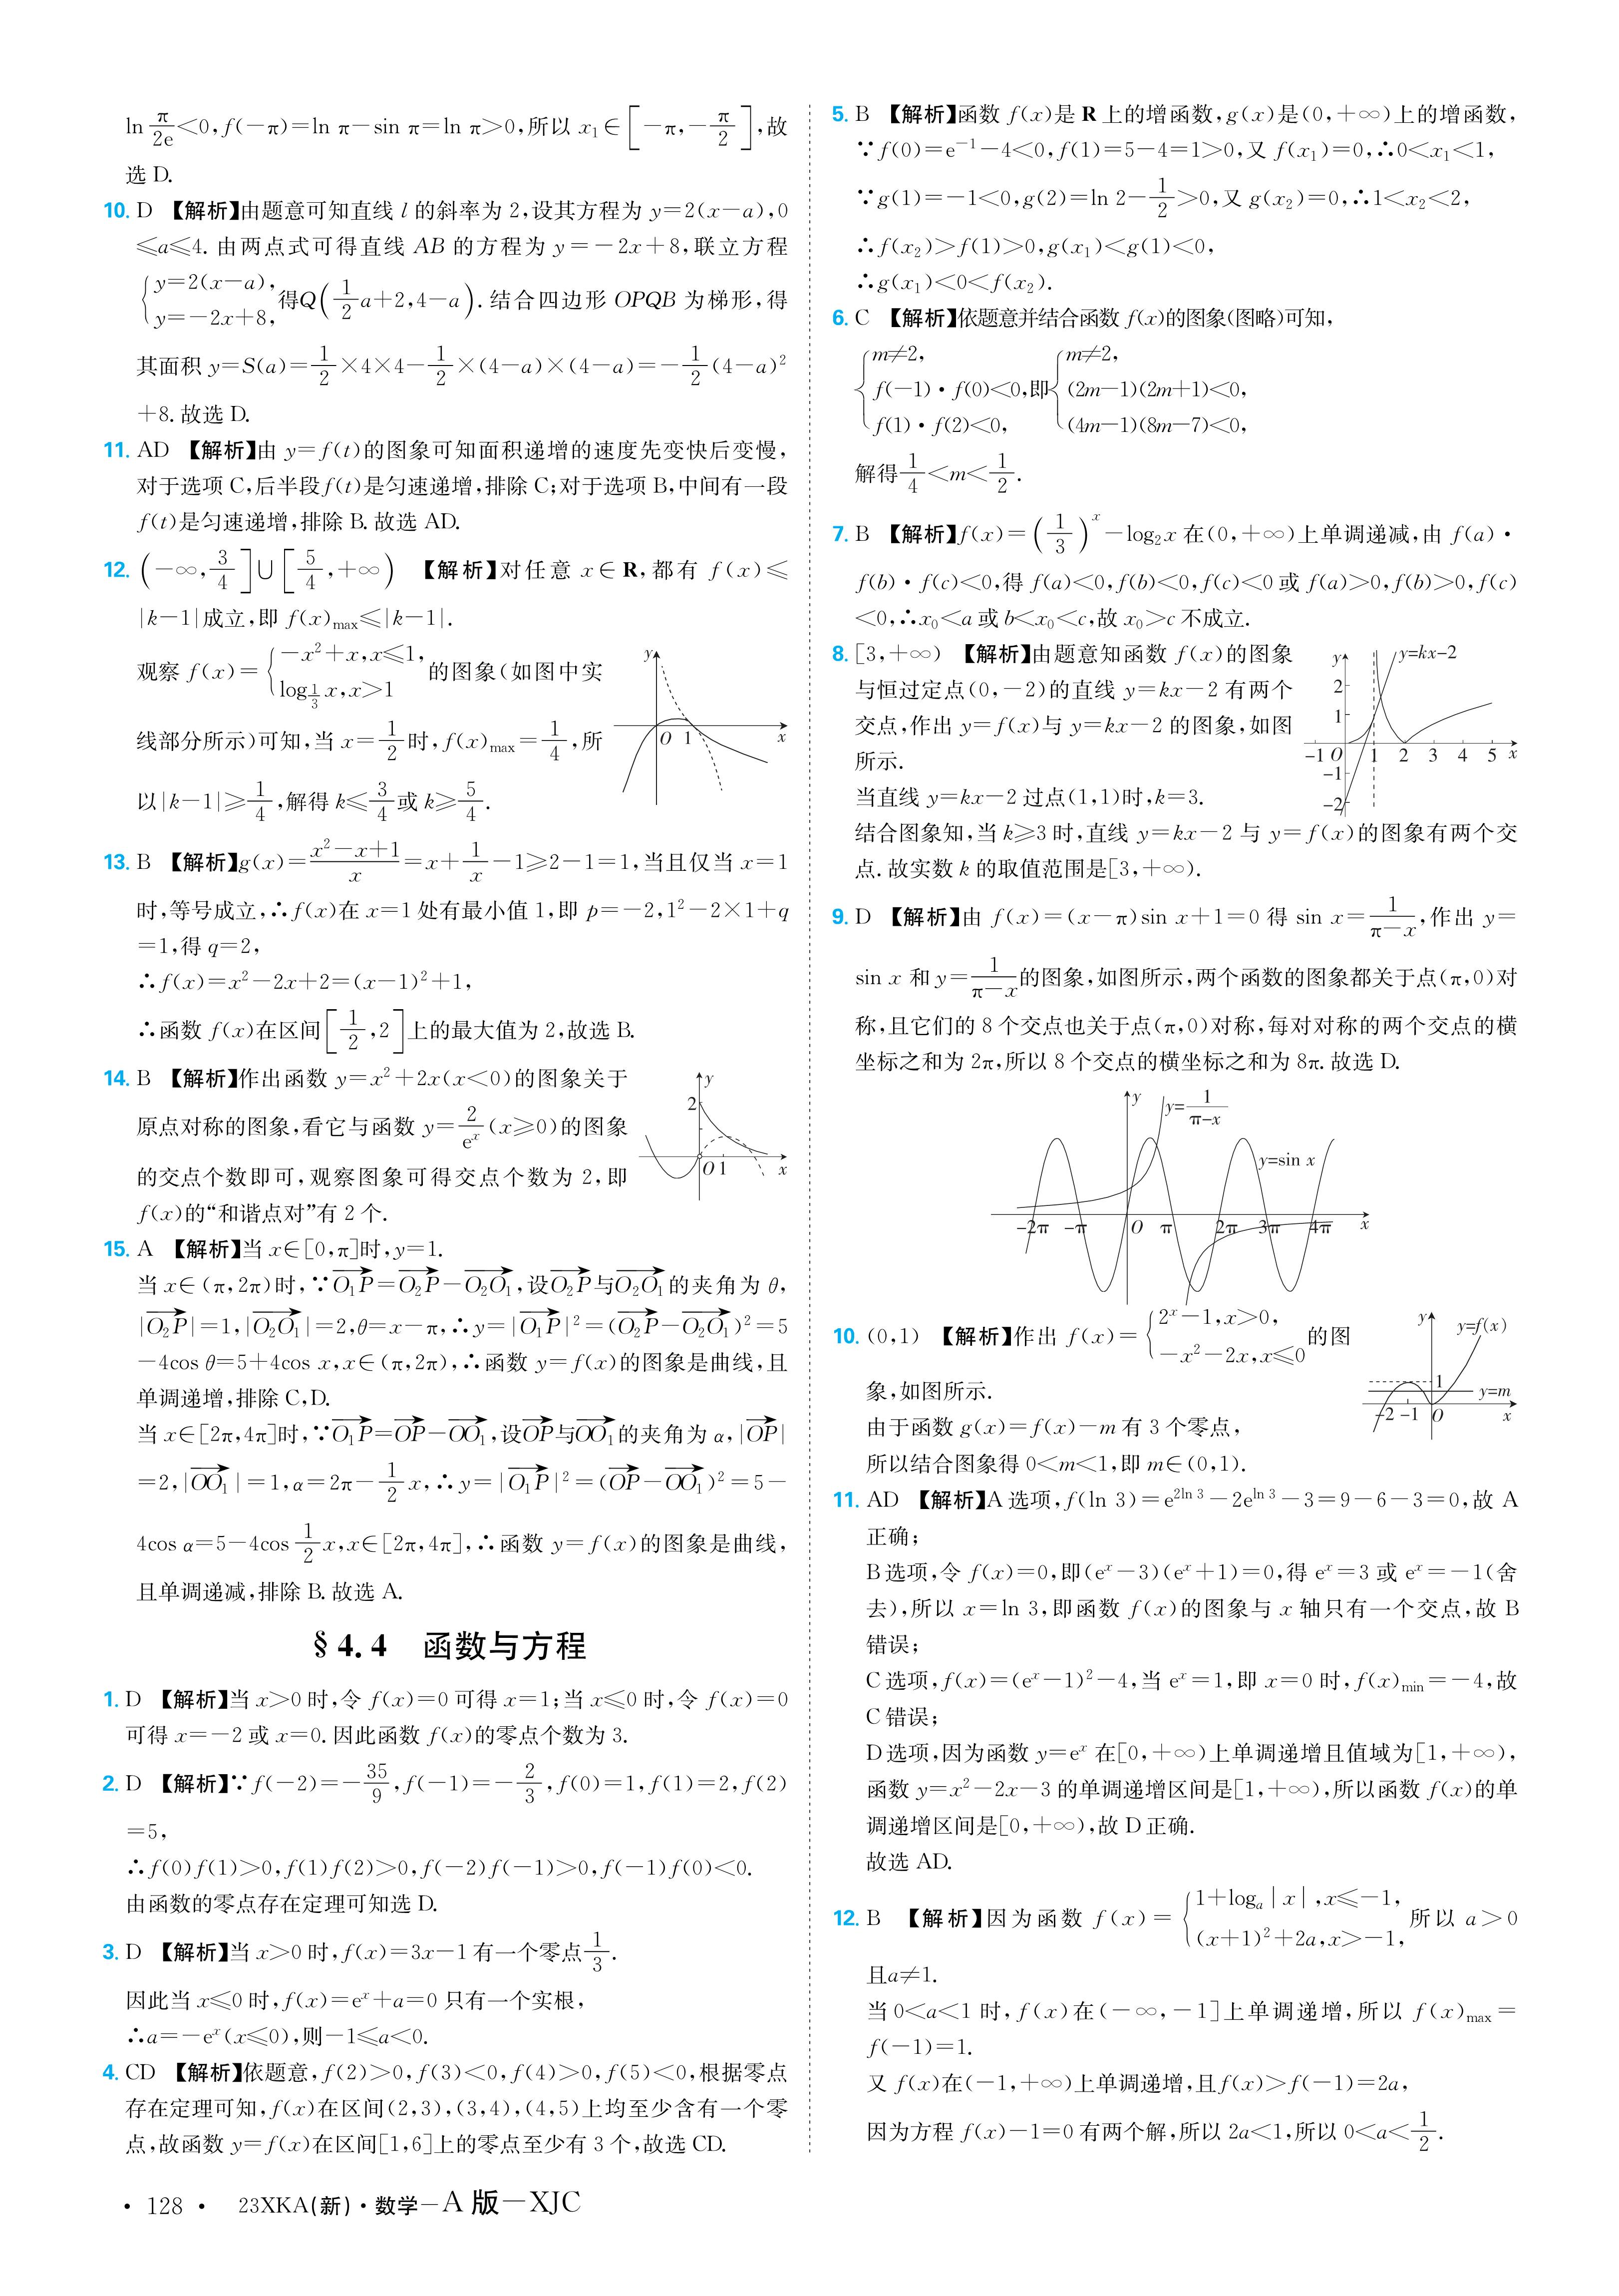 ln π/2e<0,f(-π)=ln π-sin π=ln π>0,所以 x₁∈[-π,-π/2],故
选 D.
10. D 【解析】由题意可知直线 l 的斜率为 2,设其方程为 y=2(x-a),0
≤a≤4. 由两点式可得直线 AB 的方程为 y=-2x+8,联立方程
{y=2(x-a), y=-2x+8, 得Q(1/2 a+2,4-a). 结合四边形 OPQB 为梯形,得
其面积 y=S(a)=1/2×4×4-1/2×(4-a)×(4-a)=-1/2(4-a)²
+8. 故选 D.
11. AD 【解析】由 y=f(t)的图象可知面积递增的速度先变快后变慢,
对于选项 C,后半段 f(t)是匀速递增,排除 C;对于选项 B,中间有一段
f(t)是匀速递增,排除 B. 故选 AD.
12. (-∞,3/4]∪[5/4,+∞) 【解析】对任意 x∈R,都有 f(x)≤
|k-1|成立,即 f(x)max≤|k-1|.
观察 f(x)={-x²+x,x≤1, log_{1/3} x,x>1 的图象(如图中实
线部分所示)可知,当 x=1/2 时,f(x)max=1/4,所
以|k-1|≥1/4,解得 k≤3/4 或 k≥5/4.
y
O 1 x
13. B 【解析】g(x)=(x²-x+1)/x=x+1/x-1≥2-1=1,当且仅当 x=1
时,等号成立,∴f(x)在 x=1 处有最小值 1,即 p=-2,1²-2×1+q
=1,得 q=2,
∴f(x)=x²-2x+2=(x-1)²+1,
∴函数 f(x)在区间[1/2,2]上的最大值为 2,故选 B.
14. B 【解析】作出函数 y=x²+2x(x<0)的图象关于
原点对称的图象,看它与函数 y=2/eˣ(x≥0)的图象
的交点个数即可,观察图象可得交点个数为 2,即
f(x)的“和谐点对”有 2 个.
y
2
O 1 x
15. A 【解析】当 x∈[0,π]时,y=1.
当 x∈(π,2π)时,∵O₁P→=O₂P→-O₂O₁→,设O₂P→与O₂O₁→的夹角为 θ,
|O₂P→|=1,|O₂O₁→|=2,θ=x-π,∴y=|O₁P→|²=(O₂P→-O₂O₁→)²=5
-4cos θ=5+4cos x,x∈(π,2π),∴函数 y=f(x)的图象是曲线,且
单调递增,排除 C,D.
当 x∈[2π,4π]时,∵O₁P→=OP→-OO₁→,设OP→与OO₁→的夹角为 α,|OP→|
=2,|OO₁→|=1,α=2π-1/2 x,∴y=|O₁P→|²=(OP→-OO₁→)²=5-
4cos α=5-4cos 1/2 x,x∈[2π,4π],∴函数 y=f(x)的图象是曲线,
且单调递减,排除 B. 故选 A.
§4.4 函数与方程
1. D 【解析】当 x>0 时,令 f(x)=0 可得 x=1;当 x≤0 时,令 f(x)=0
可得 x=-2 或 x=0. 因此函数 f(x)的零点个数为 3.
2. D 【解析】∵f(-2)=-35/9,f(-1)=-2/3,f(0)=1,f(1)=2,f(2)
=5,
∴f(0)f(1)>0,f(1)f(2)>0,f(-2)f(-1)>0,f(-1)f(0)<0.
由函数的零点存在定理可知选 D.
3. D 【解析】当 x>0 时,f(x)=3x-1 有一个零点1/3.
因此当 x≤0 时,f(x)=eˣ+a=0 只有一个实根,
∴a=-eˣ(x≤0),则-1≤a<0.
4. CD 【解析】依题意,f(2)>0,f(3)<0,f(4)>0,f(5)<0,根据零点
存在定理可知,f(x)在区间(2,3),(3,4),(4,5)上均至少含有一个零
点,故函数 y=f(x)在区间[1,6]上的零点至少有 3 个,故选 CD.
5. B 【解析】函数 f(x)是 R 上的增函数,g(x)是(0,+∞)上的增函数,
∵f(0)=e⁻¹-4<0,f(1)=5-4=1>0,又 f(x₁)=0,∴0<x₁<1,
∵g(1)=-1<0,g(2)=ln 2-1/2>0,又 g(x₂)=0,∴1<x₂<2,
∴f(x₂)>f(1)>0,g(x₁)<g(1)<0,
∴g(x₁)<0<f(x₂).
6. C 【解析】依题意并结合函数 f(x)的图象(图略)可知,
{m≠2, f(-1)·f(0)<0, f(1)·f(2)<0, 即{m≠2, (2m-1)(2m+1)<0, (4m-1)(8m-7)<0,
解得1/4<m<1/2.
7. B 【解析】f(x)=(1/3)ˣ-log₂x 在(0,+∞)上单调递减,由 f(a)·
f(b)·f(c)<0,得 f(a)<0,f(b)<0,f(c)<0 或 f(a)>0,f(b)>0,f(c)
<0,∴x₀<a 或 b<x₀<c,故 x₀>c 不成立.
8. [3,+∞) 【解析】由题意知函数 f(x)的图象
与恒过定点(0,-2)的直线 y=kx-2 有两个
交点,作出 y=f(x)与 y=kx-2 的图象,如图
所示.
当直线 y=kx-2 过点(1,1)时,k=3.
y y=kx-2
2
1
-1 O 1 2 3 4 5 x
-1
-2
结合图象知,当 k≥3 时,直线 y=kx-2 与 y=f(x)的图象有两个交
点. 故实数 k 的取值范围是[3,+∞).
9. D 【解析】由 f(x)=(x-π)sin x+1=0 得 sin x=1/(π-x),作出 y=
sin x 和 y=1/(π-x)的图象,如图所示,两个函数的图象都关于点(π,0)对
称,且它们的 8 个交点也关于点(π,0)对称,每对对称的两个交点的横
坐标之和为 2π,所以 8 个交点的横坐标之和为 8π. 故选 D.
y y=1/(π-x)
y=sin x
-2π -π O π 2π 3π 4π x
10. (0,1) 【解析】作出 f(x)={2ˣ-1,x>0, -x²-2x,x≤0 的图
象,如图所示.
由于函数 g(x)=f(x)-m 有 3 个零点,
所以结合图象得 0<m<1,即 m∈(0,1).
y y=f(x)
1
y=m
-2 -1 O x
11. AD 【解析】A 选项,f(ln 3)=e^{2ln 3}-2e^{ln 3}-3=9-6-3=0,故 A
正确;
B 选项,令 f(x)=0,即(eˣ-3)(eˣ+1)=0,得 eˣ=3 或 eˣ=-1(舍
去),所以 x=ln 3,即函数 f(x)的图象与 x 轴只有一个交点,故 B
错误;
C 选项,f(x)=(eˣ-1)²-4,当 eˣ=1,即 x=0 时,f(x)min=-4,故
C 错误;
D 选项,因为函数 y=eˣ 在[0,+∞)上单调递增且值域为[1,+∞),
函数 y=x²-2x-3 的单调递增区间是[1,+∞),所以函数 f(x)的单
调递增区间是[0,+∞),故 D 正确.
故选 AD.
12. B 【解析】因为函数 f(x)={1+logₐ|x|,x≤-1, (x+1)²+2a,x>-1, 所以 a>0
且a≠1.
当 0<a<1 时,f(x)在(-∞,-1]上单调递增,所以 f(x)max=
f(-1)=1.
又 f(x)在(-1,+∞)上单调递增,且f(x)>f(-1)=2a,
因为方程 f(x)-1=0 有两个解,所以 2a<1,所以 0<a<1/2.
· 128 · 23XKA(新)·数学-A 版-XJC